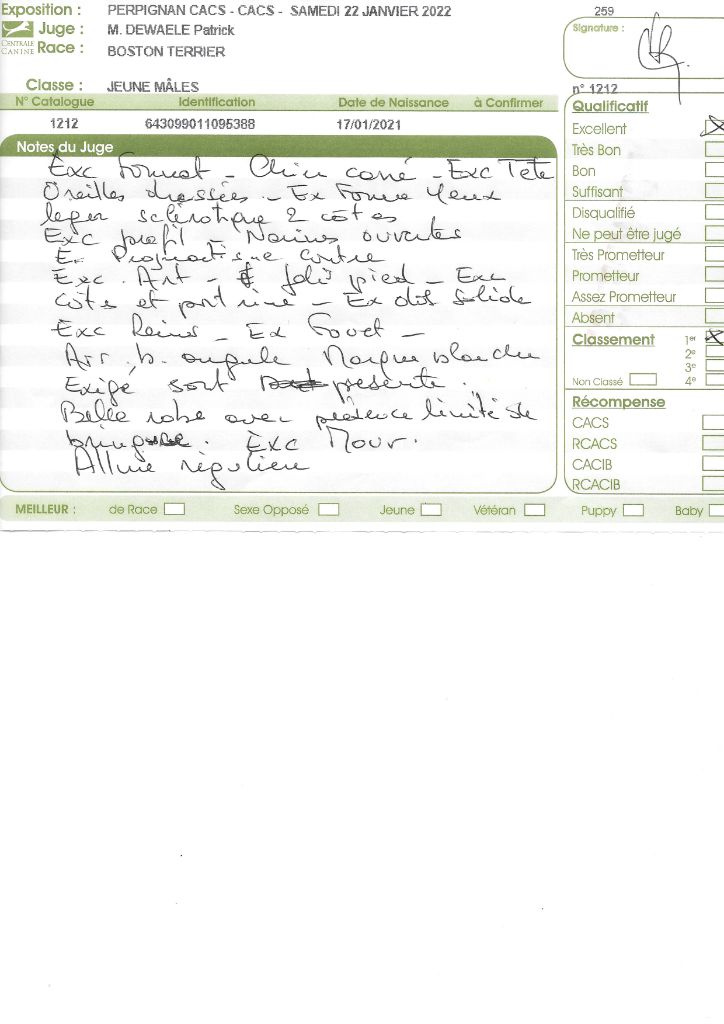 Exposition : PERPIGNAN CACS - CACS - SAMEDI 22 JANVIER 2022
259
Juge : M. DEWAELE Patrick
Signature :
CENTRALE CANINE
Race : BOSTON TERRIER
Classe : JEUNE MÂLES
n° 1212
N° Catalogue Identification Date de Naissance à Confirmer
1212 643099011095388 17/01/2021
Notes du Juge
Exc Format - Chien carré - Exc Tete
Oreilles dressées - Ex Forme Yeux
leger sclérotique 2 côtes
Exc profil - Narines ouvertes
Ex Prognathisme
Exc. Art - joli pied - Exc
côte et poitrine - Ex dos solide
Exc Reins - Ex Fouet -
Arr. b. angulé Marque blanche
Exigé sont présente.
Belle robe avec présence limité de
bringure. Exc Mouv.
Allure régulière
Qualificatif
Excellent
Très Bon
Bon
Suffisant
Disqualifié
Ne peut être jugé
Très Prometteur
Prometteur
Assez Prometteur
Absent
Classement 1er
2e
3e
Non Classé 4e
Récompense
CACS
RCACS
CACIB
RCACIB
MEILLEUR : de Race Sexe Opposé Jeune Vétéran Puppy Baby